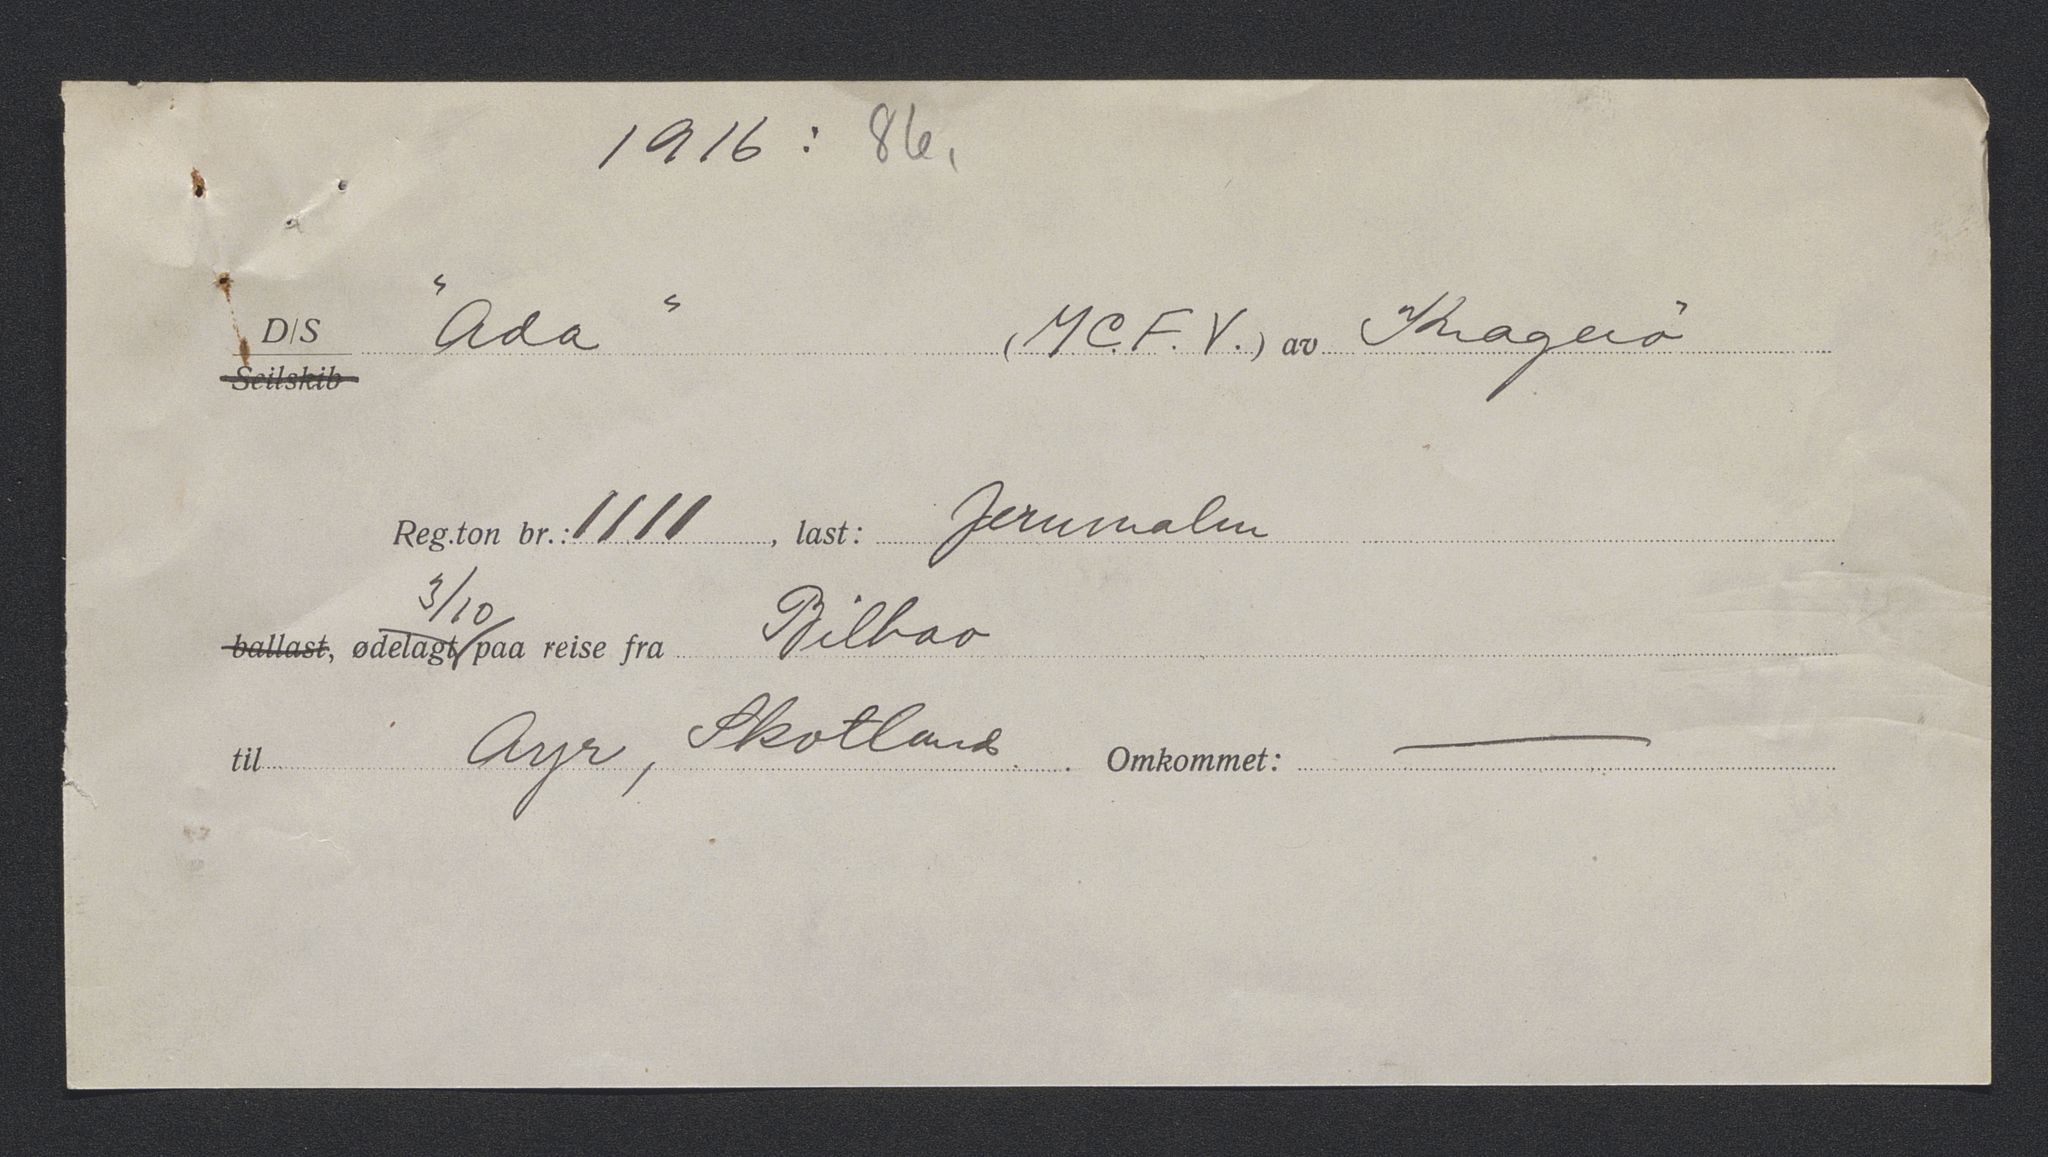 1916: 86.
D/S "Ada" (M.C.F.V.) av Kragerö
Seilskib
Reg.ton br.: 1111, last: Jernmalm
3/10
ballast, ødelagt paa reise fra Bilbao
til Ayr, Skotland. Omkommet: —